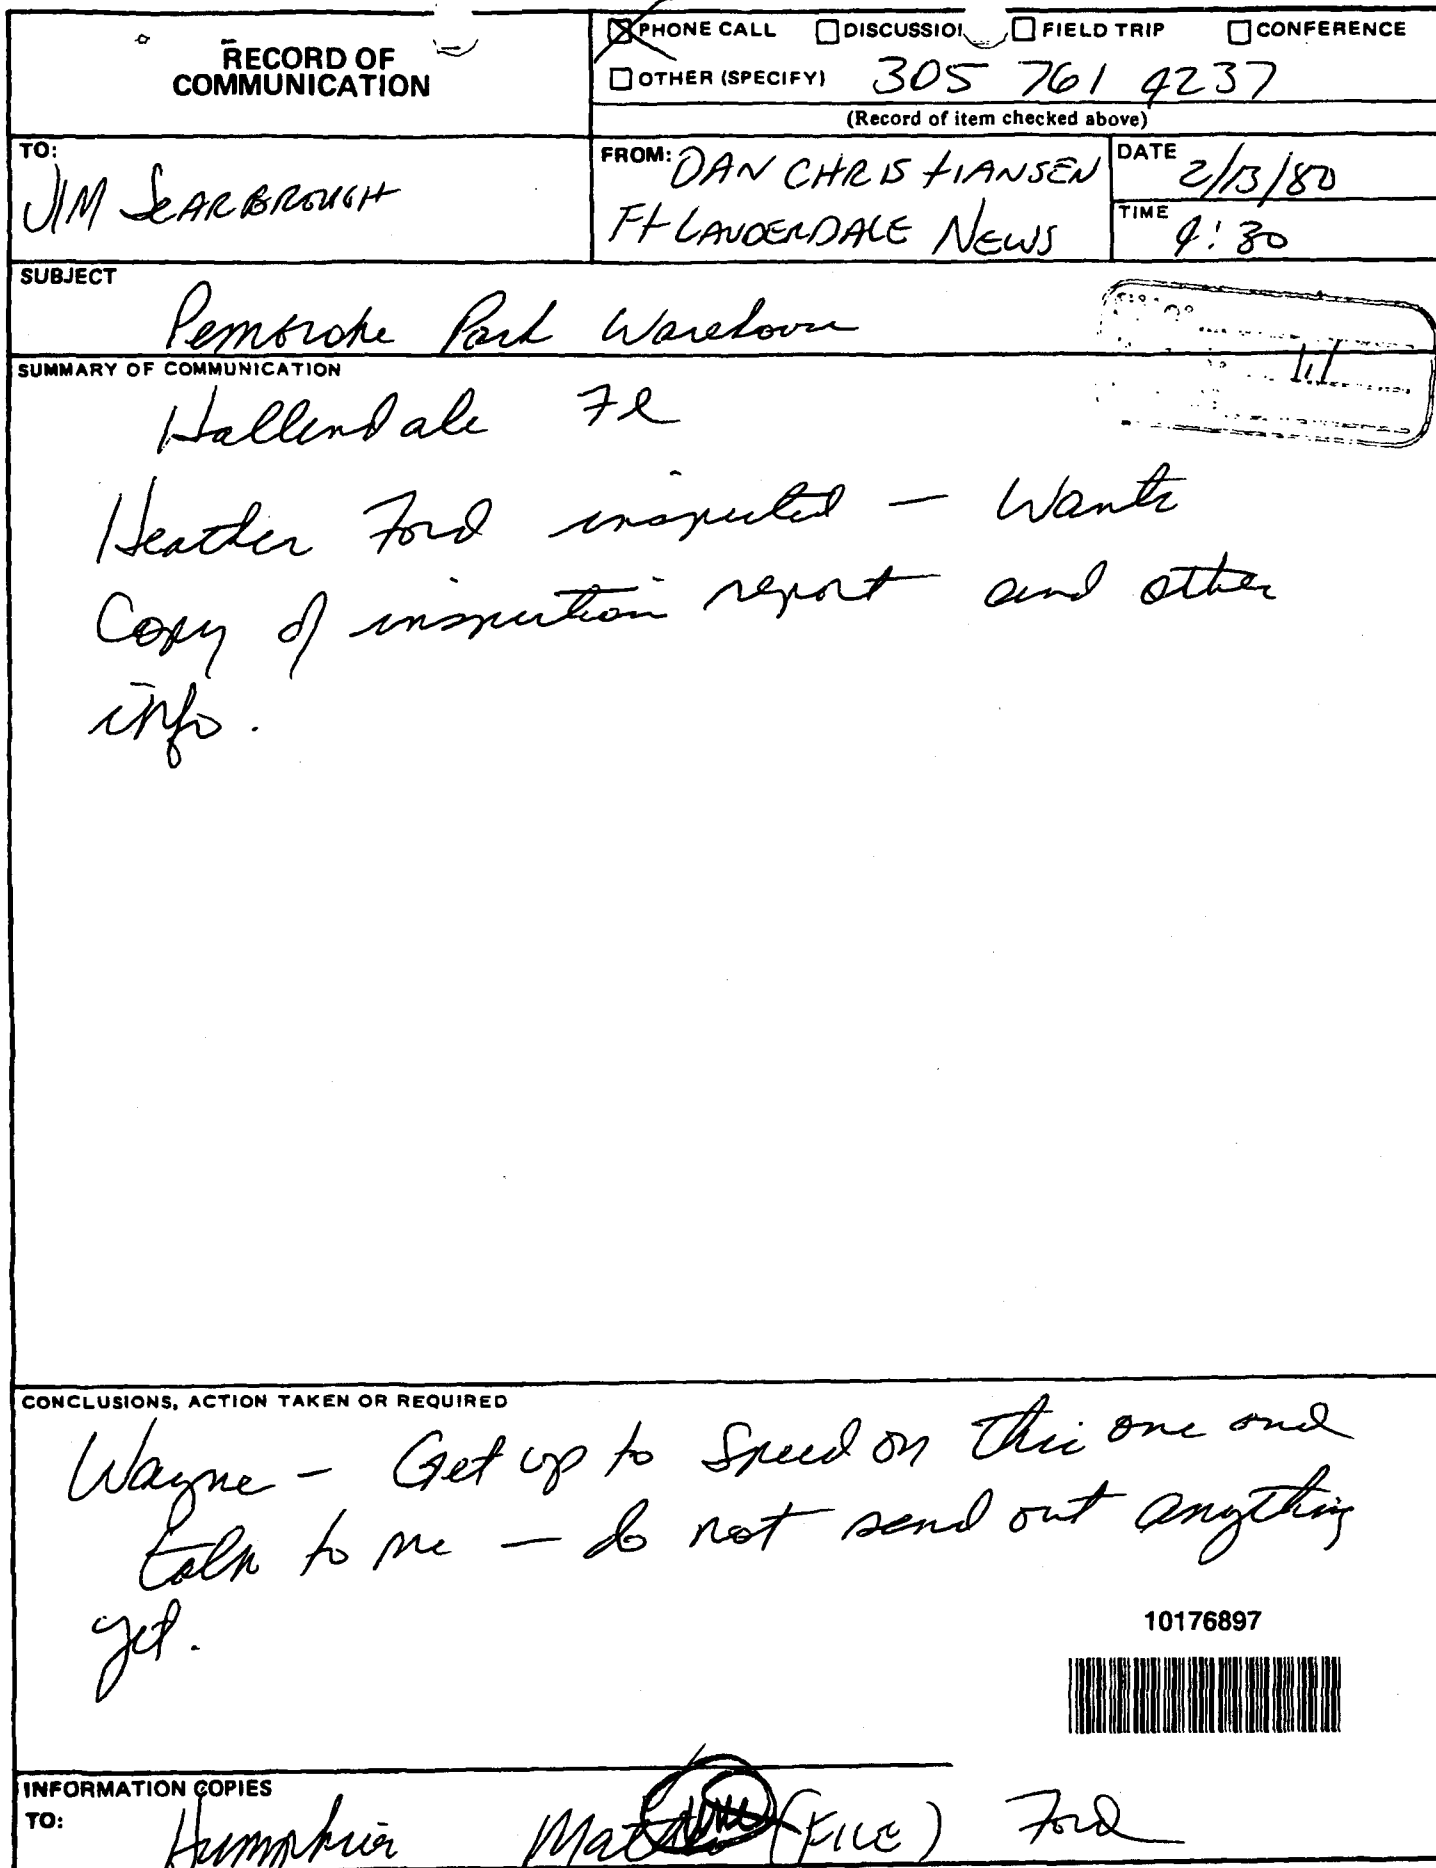 RECORD OF
COMMUNICATION
PHONE CALL DISCUSSION FIELD TRIP CONFERENCE
OTHER (SPECIFY) 305 761 4237
(Record of item checked above)
TO:
JIM SCARBROUGH
FROM: DAN CHRISTIANSEN
Ft LAUDERDALE NEWS
DATE 2/13/80
TIME 4:30
SUBJECT
Pembroke Park Warehouse
SUMMARY OF COMMUNICATION
Hallendale Fl
Heather Ford inspected — Wants
Copy of inspection report and other
info.
CONCLUSIONS, ACTION TAKEN OR REQUIRED
Wayne — Get up to Speed on this one and
talk to me — do not send out anything
yet.
10176897
INFORMATION COPIES
TO:
Humphries (FILE) Ford